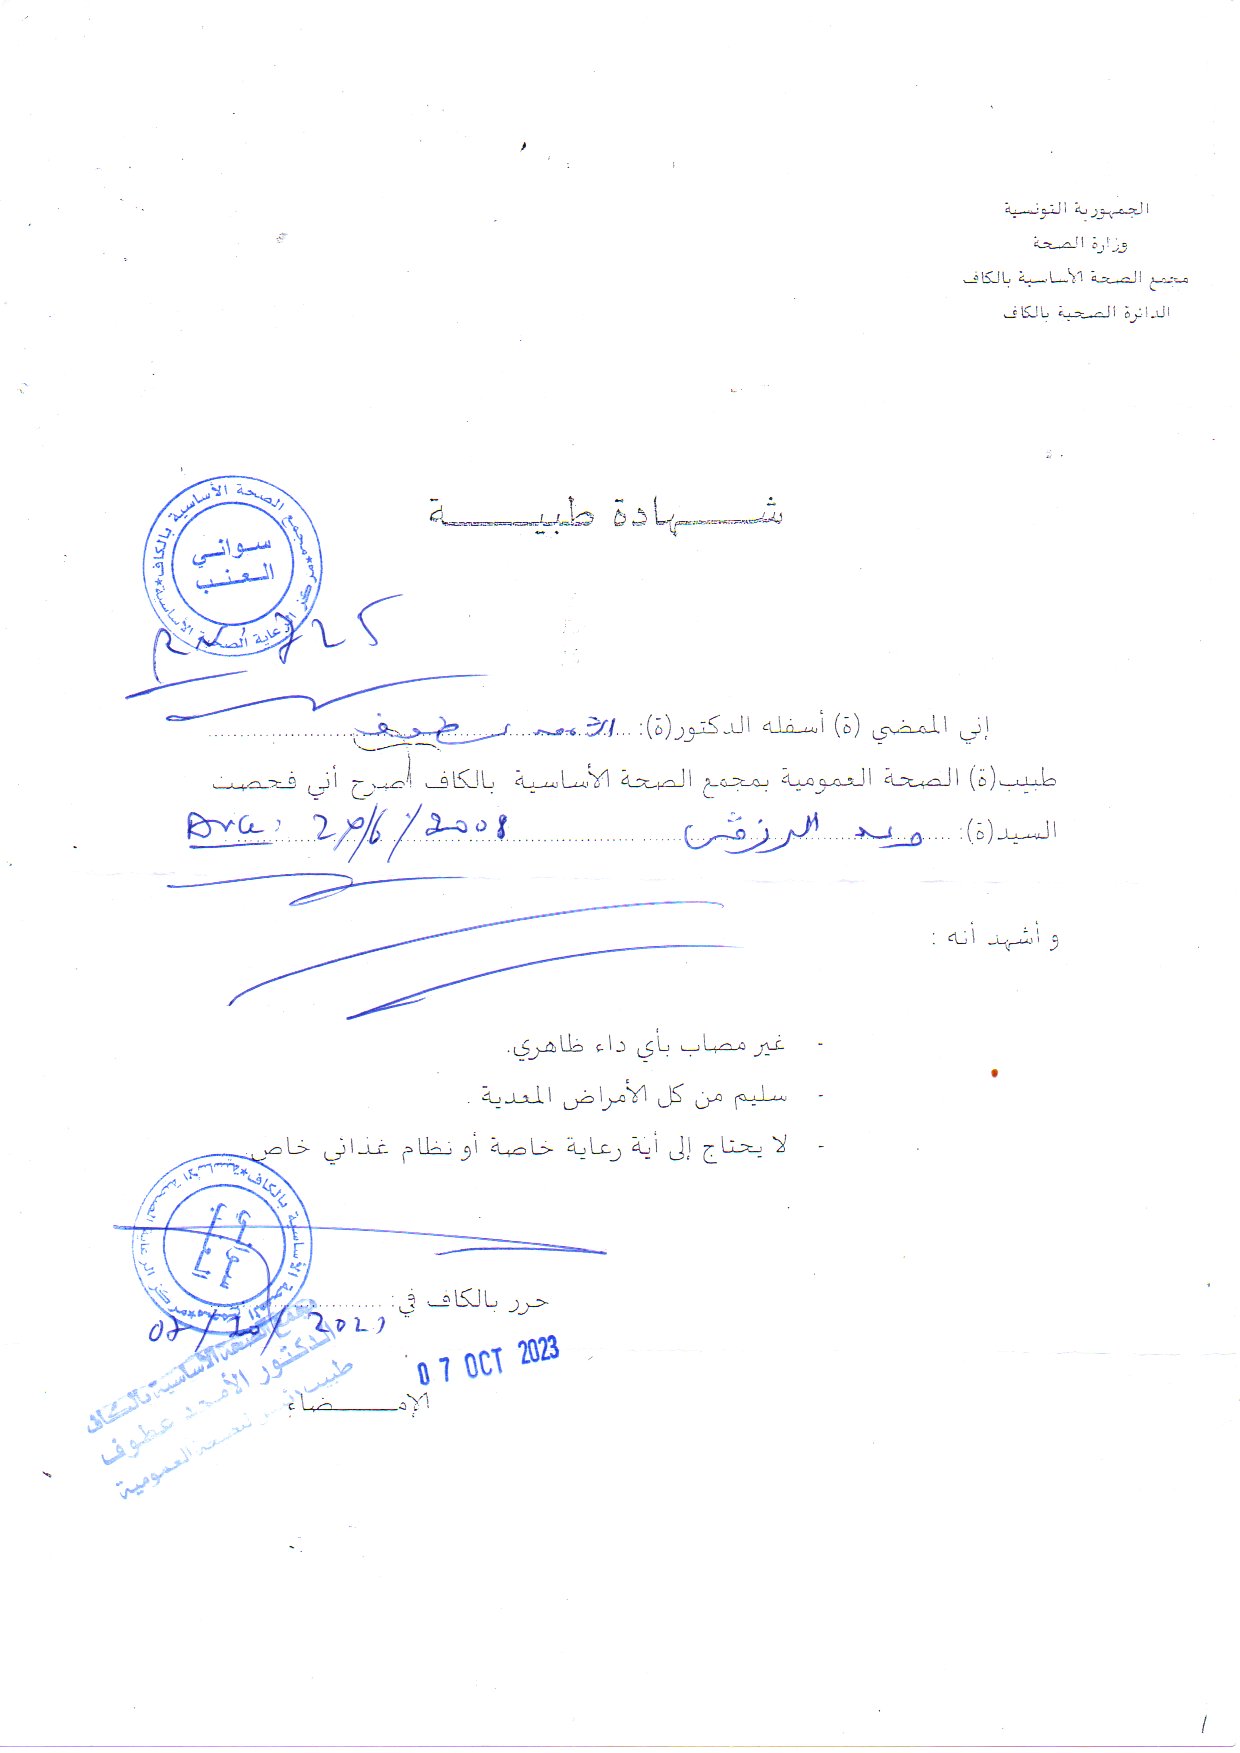 الجمهورية التونسية
وزارة الصحة
مجمع الصحة الأساسية بالكاف
الدائرة الصحية بالكاف
شـــهادة طبيـــــة
مجمع الصحة الأساسية بالكاف
سواني
العنب
مركز الرعاية الصحية الأساسية
إني الممضي (ة) أسفله الدكتور(ة): الأمجد عطوف
طبيب(ة) الصحة العمومية بمجمع الصحة الأساسية بالكاف أصرح أني فحصت
السيد(ة): 2008
و أشهد أنه :
- غير مصاب بأي داء ظاهري.
- سليم من كل الأمراض المعدية .
- لا يحتاج إلى أية رعاية خاصة أو نظام غذائي خاص
مجمع الصحة الأساسية بالكاف
سواني
العنب
مركز الرعاية الصحية الأساسية
حرر بالكاف في:
07 OCT 2023
الإمـــــضاء
مجمع الصحة الأساسية بالكاف
الدكتور الأمجد عطوف
العمومية
1